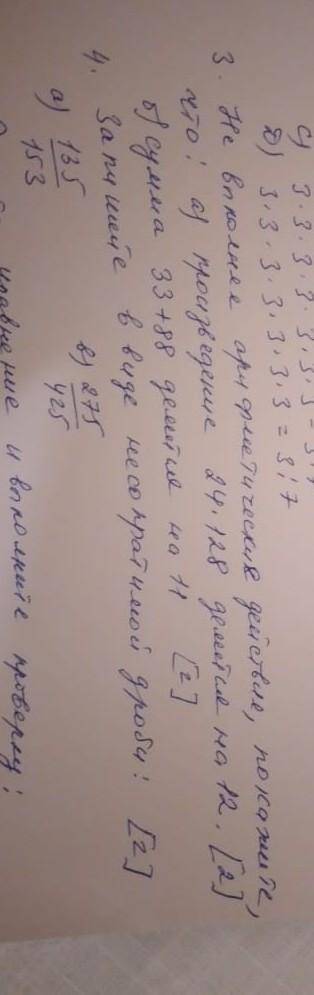 С) 3·3·3·3·3·3·3 = 3
D) 3·3·3·3·3·3·3 = 3; 7
3. Не выполняя арифметических действие, покажите,
что: а) произведение 24·128 делится на 12. [2]
б) сумма 33+88 делится на 11 [2]
4. Запишите в виде несократимой дроби: [2]
а) 135/153 в) 275/425
уравнение и выполните проверку: